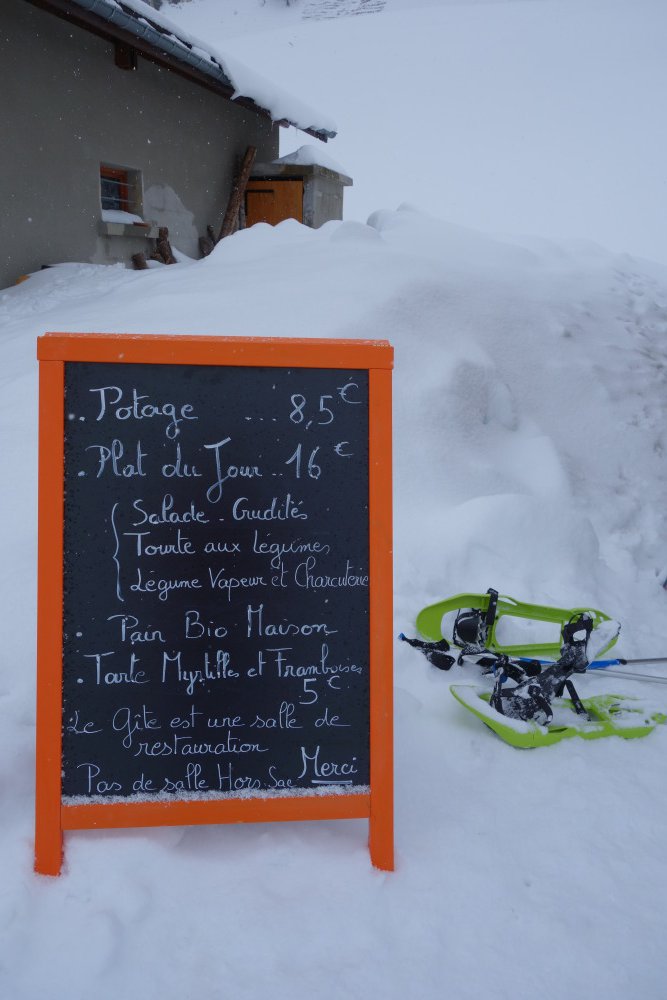 . Potage .... 8,5 €
. Plat du Jour .. 16 €
Salade - Crudités
Tourte aux légumes
Légume Vapeur et Charcuterie
. Pain Bio Maison
. Tarte Myrtilles et Framboises
5 €
Le Gîte est une salle de
restauration
Pas de salle Hors Sac Merci